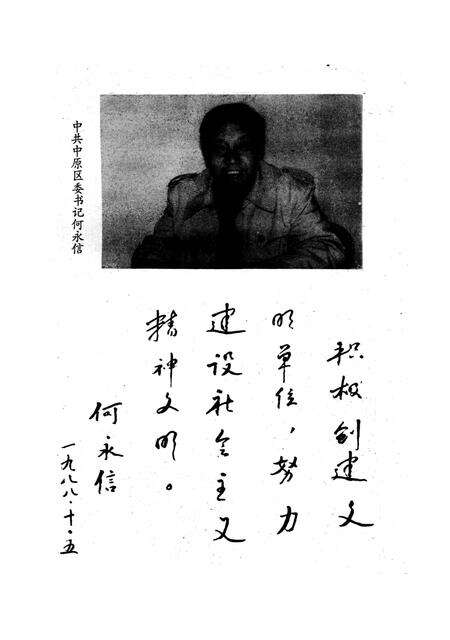 中共中原区委书记何永信
积极创建文
明单位，努力
建设社会主义
精神文明。
何永信
一九八八·十·五